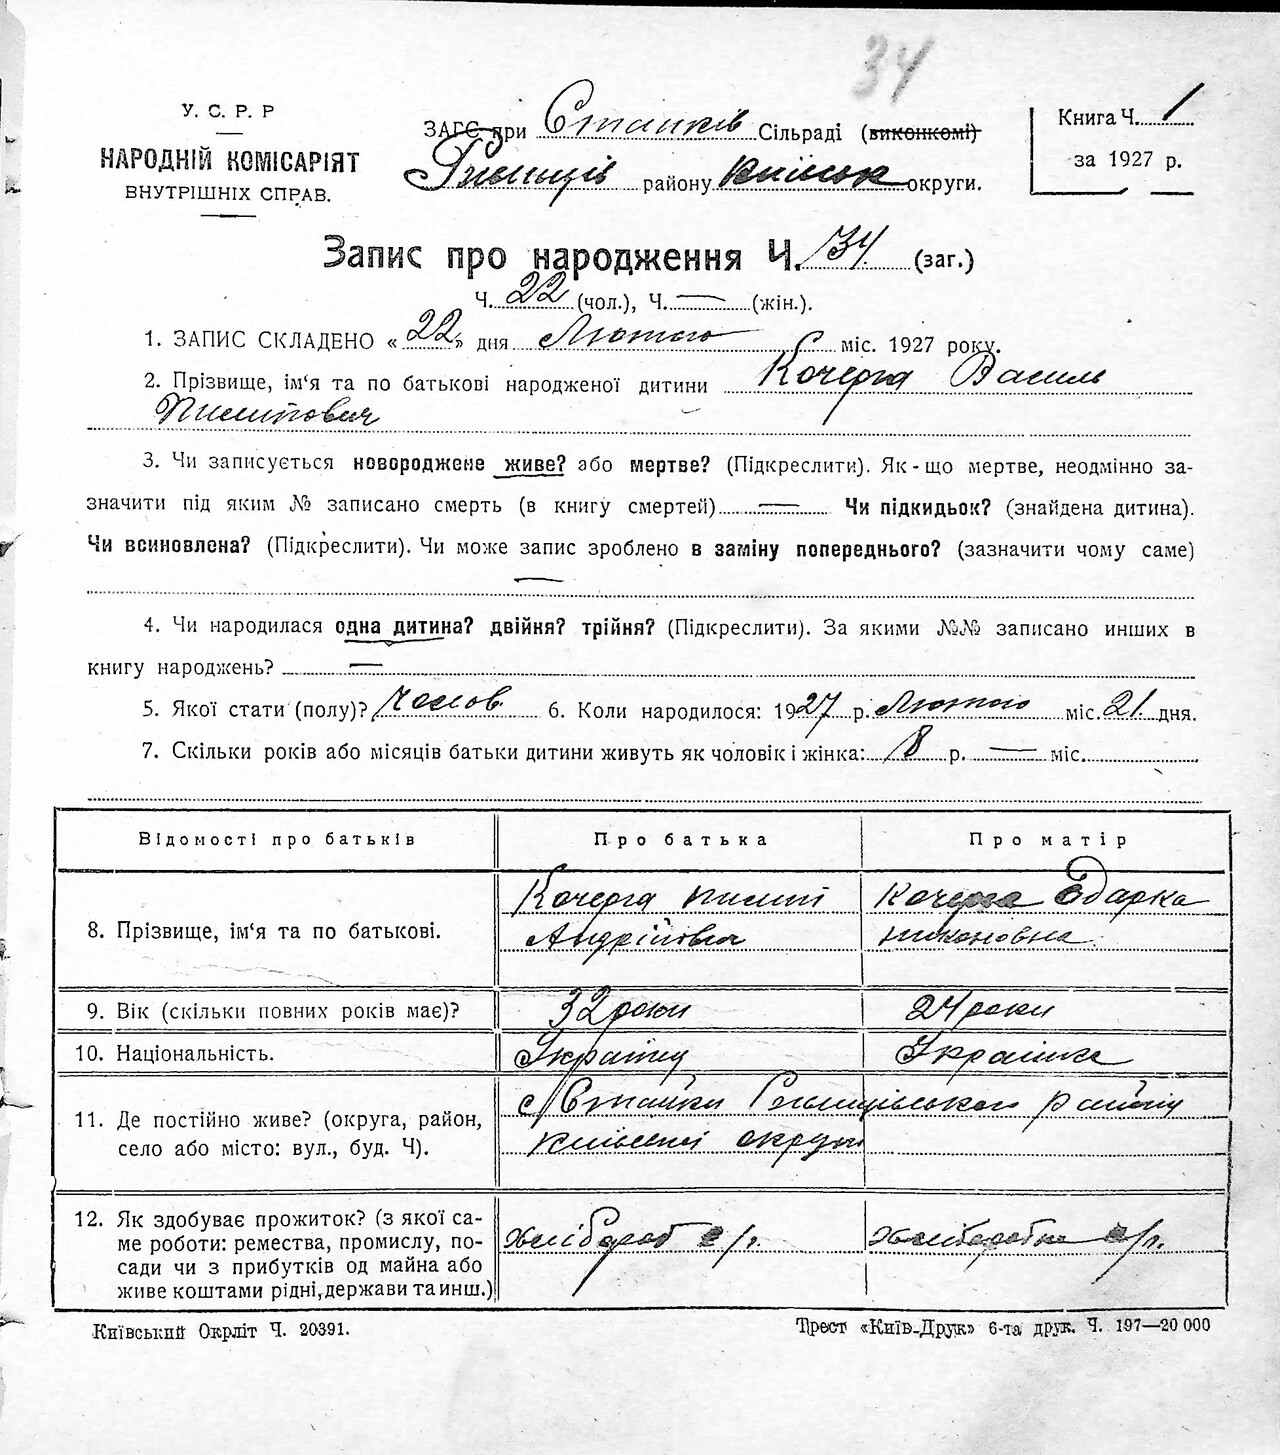 34
У. С. Р. Р
НАРОДНІЙ КОМІСАРІЯТ
ВНУТРІШНІХ СПРАВ.
ЗАГС при Стайків Сільраді (виконкомі)
Ржищів району Київськ округи.
Книга Ч. 1
за 1927 р.
Запис про народження Ч. 34 (заг.)
Ч. 22 (чол.), Ч. — (жін.).
1. ЗАПИС СКЛАДЕНО «22» дня Лютого міс. 1927 року.
2. Прізвище, ім‘я та по батькові народженої дитини Кочерга Василь
Пилипович
3. Чи записується новороджене живе? або мертве? (Підкреслити). Як-що мертве, неодмінно за-
значити під яким № записано смерть (в книгу смертей) — Чи підкидьок? (знайдена дитина).
Чи всиновлена? (Підкреслити). Чи може запис зроблено в заміну попереднього? (зазначити чому саме)
—
4. Чи народилася одна дитина? двійня? трійня? (Підкреслити). За якими №№ записано инших в
книгу народжень? —
5. Якої стати (полу)? Чолов. 6. Коли народилося: 1927 р. Лютого міс. 21 дня.
7. Скільки років або місяців батьки дитини живуть як чоловік і жінка: 8 р. — міс.
Відомості про батьків Про батька Про матір
8. Прізвище, ім‘я та по батькові. Кочерга Пилип Кочерга Одарка
Андрійович Никоновна
9. Вік (скільки повних років має)? 32 роки 24 роки
10. Національність. Українц Українка
11. Де постійно живе? (округа, район, с/Стайки Ржищівського району
село або місто: вул., буд. Ч). Київської округи
12. Як здобуває прожиток? (з якої са-
ме роботи: ремества, промислу, по- хлібороб с/г. хліборобка с/г.
сади чи з прибутків од майна або
живе коштами рідні, держави та инш.)
Київський Окрліт Ч. 20391.
Трест «Київ-Друк» 6-та друк. Ч. 197—20 000